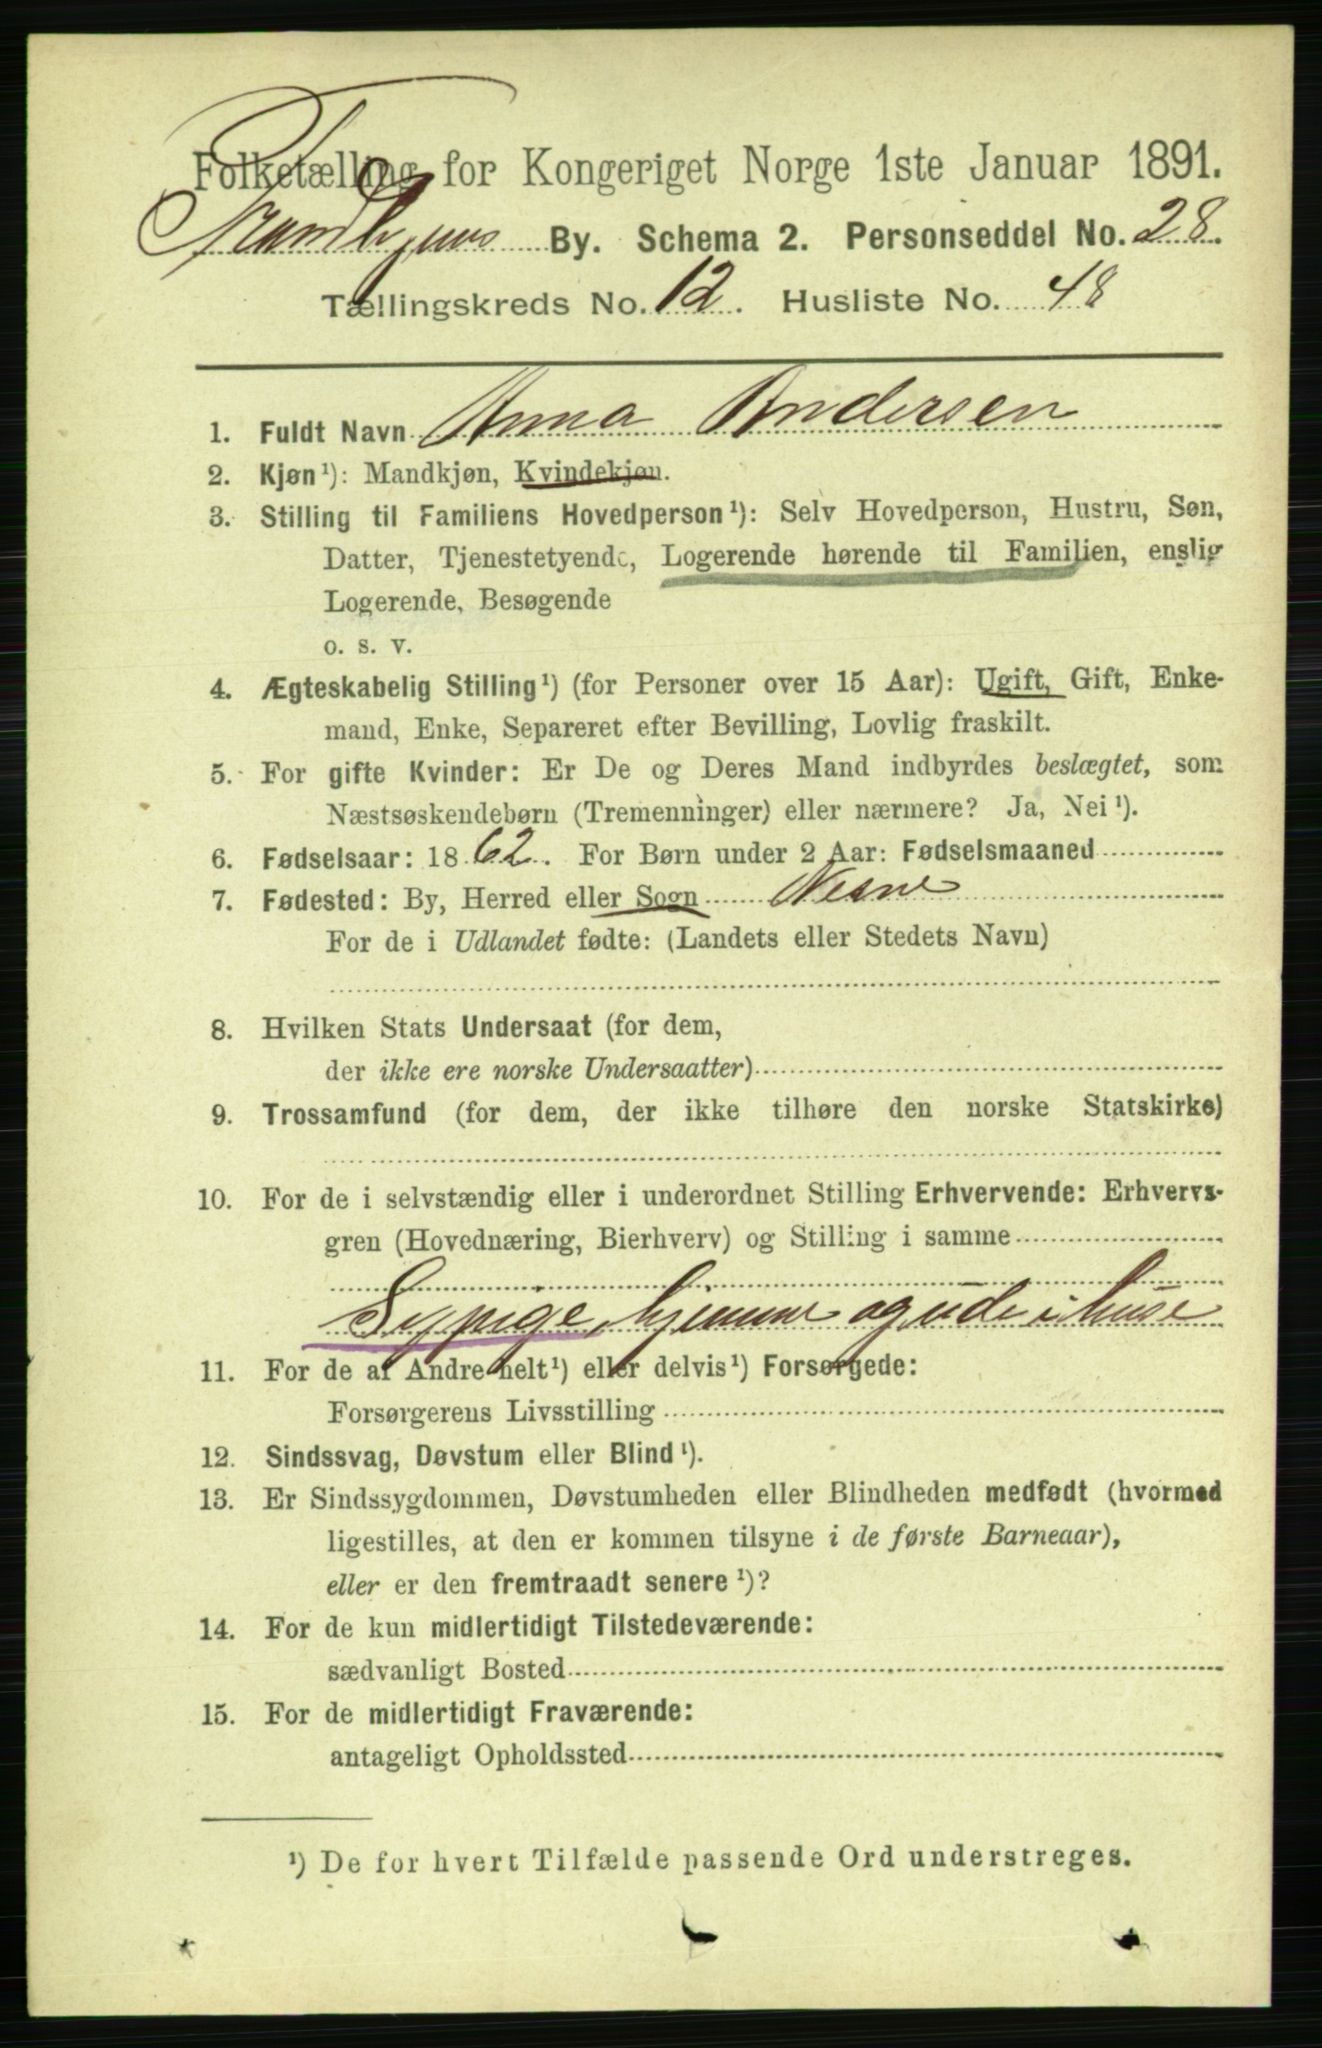 Folketælling for Kongeriget Norge 1ste Januar 1891.
Trondhjems By. Schema 2. Personseddel No. 28.
Tællingskreds No. 12. Husliste No. 48
1. Fuldt Navn Anna Andersen
2. Kjøn¹): Mandkjøn, Kvindekjøn.
3. Stilling til Familiens Hovedperson¹): Selv Hovedperson, Hustru, Søn,
Datter, Tjenestetyende, Logerende hørende til Familien, enslig
Logerende, Besøgende
o. s. v.
4. Ægteskabelig Stilling¹) (for Personer over 15 Aar): Ugift, Gift, Enke-
mand, Enke, Separeret efter Bevilling, Lovlig fraskilt.
5. For gifte Kvinder: Er De og Deres Mand indbyrdes beslægtet, som
Næstsøskendebørn (Tremenninger) eller nærmere? Ja, Nei¹).
6. Fødselsaar: 1862. For Børn under 2 Aar: Fødselsmaaned
7. Fødested: By, Herred eller Sogn Nesne
For de i Udlandet fødte: (Landets eller Stedets Navn)
8. Hvilken Stats Undersaat (for dem,
der ikke ere norske Undersaatter)
9. Trossamfund (for dem, der ikke tilhøre den norske Statskirke)
10. For de i selvstændig eller i underordnet Stilling Erhvervende: Erhvervs-
gren (Hovednæring, Bierhverv) og Stilling i samme
Sypige, hjemme og ude i huse
11. For de af Andre helt¹) eller delvis¹) Forsørgede:
Forsørgerens Livsstilling
12. Sindssvag, Døvstum eller Blind¹).
13. Er Sindssygdommen, Døvstumheden eller Blindheden medfødt (hvormed
ligestilles, at den er kommen tilsyne i de første Barneaar),
eller er den fremtraadt senere¹)?
14. For de kun midlertidigt Tilstedeværende:
sædvanligt Bosted
15. For de midlertidigt Fraværende:
antageligt Opholdssted
¹) De for hvert Tilfælde passende Ord understreges.